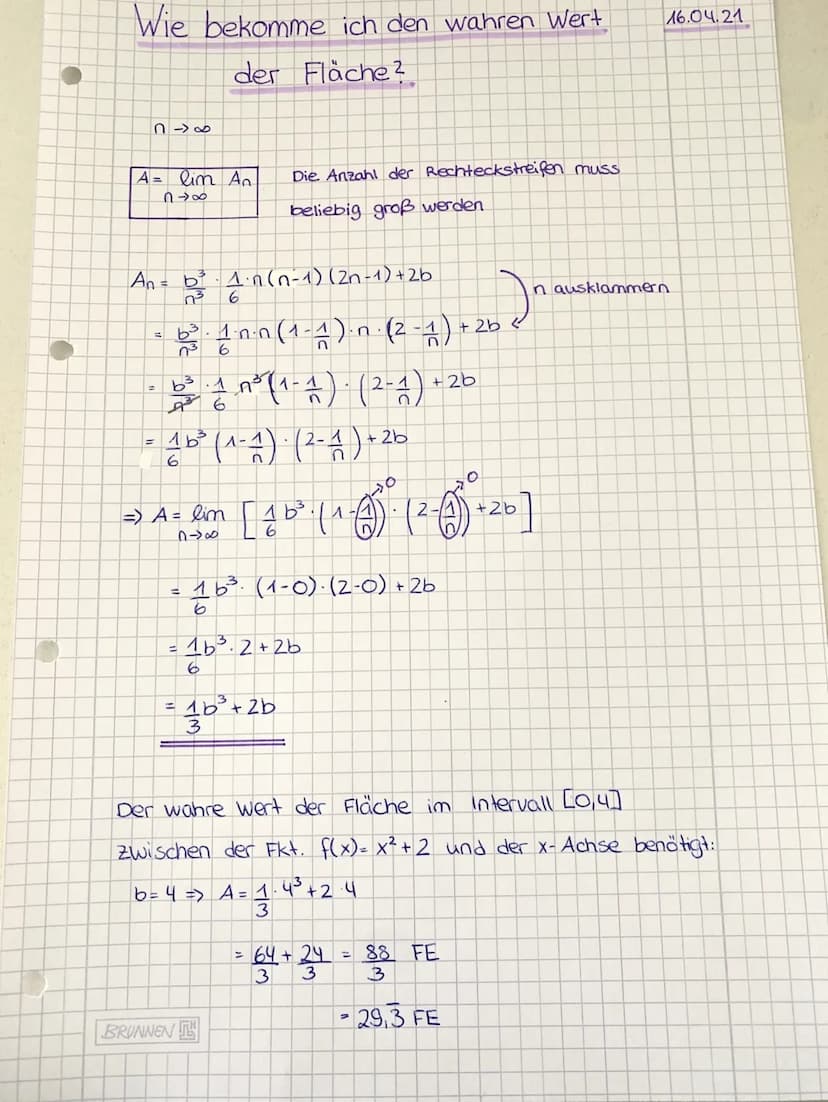 Wie bekomme ich den wahren Wert 16.04.21
der Fläche?
n → ∞
A = lim An Die Anzahl der Rechteckstreifen muss
n→∞
beliebig groß werden
An = b³/n³ · 1/6 · n(n-1)(2n-1)+2b
n ausklammern
= b³/n³ · 1/6 · n·n(1-1/n)·n·(2-1/n)+2b
= b³/n³ · 1/6 n³(1-1/n)·(2-1/n)+2b
= 1/6 b³(1-1/n)·(2-1/n)+2b
→0 →0
⇒ A = lim [1/6 b³·(1-1/n)·(2-1/n)+2b]
n→∞
= 1/6 b³·(1-0)·(2-0)+2b
= 1/6 b³·2+2b
= 1/3 b³+2b
Der wahre Wert der Fläche im Intervall [0,4]
zwischen der Fkt. f(x)= x²+2 und der x-Achse benötigt:
b=4 ⇒ A= 1/3·4³+2·4
= 64/3 + 24/3 = 88/3 FE
= 29,3̅ FE
BRUNNEN